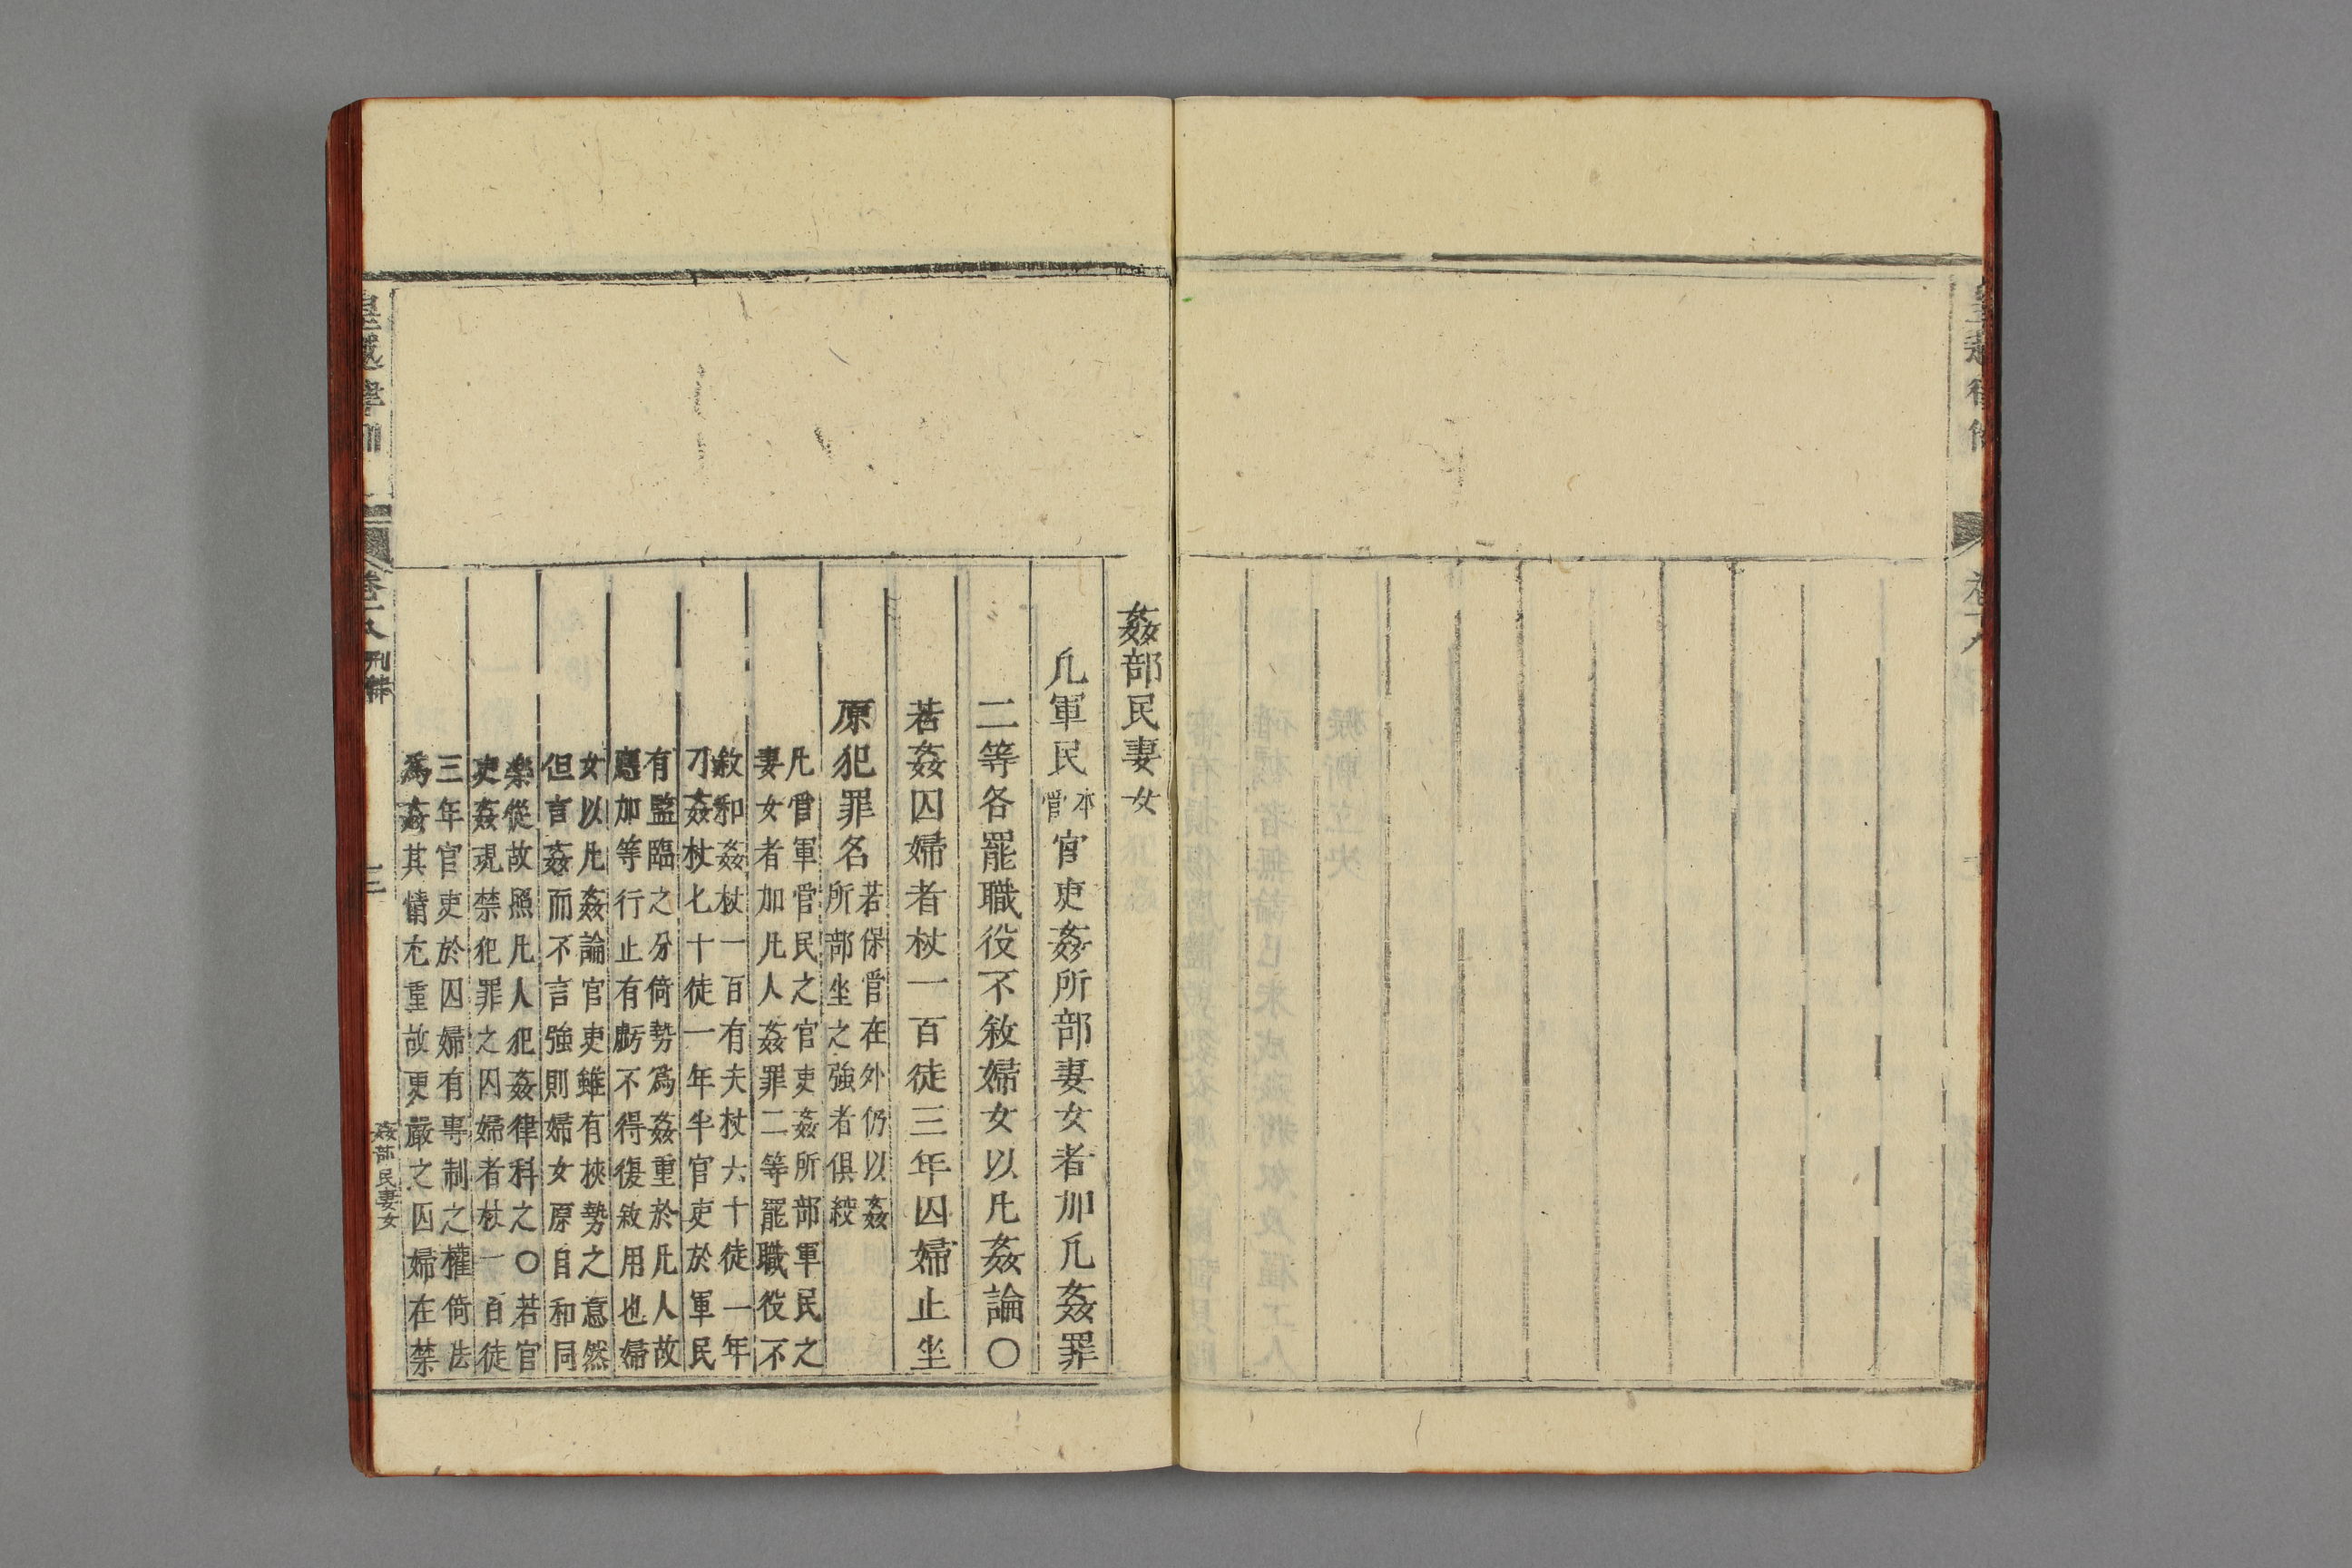 皇越律例
卷十八
姦部民妻女
凢軍民本管官吏姦所部妻女者加凢姦罪
二等各罷職役不敘婦女以凢姦論〇
若姦囚婦者杖一百徒三年囚婦止坐
原犯罪名
若保管在外仍以姦
所部坐之強者俱絞
凢管軍管民之官吏姦所部軍民之
妻女者加凢人姦罪二等罷職役不
敘和姦杖一百有夫杖六十徒一年
刁姦杖七十徒一年半官吏於軍民
有監臨之分倚勢爲姦重於凢人故
應加等行止有虧不得復敘用也婦
女以凢姦論官吏雖有挾勢之意然
但言姦而不言強則婦女原自和同
樂從故照凢人犯姦律科之〇若官
吏姦現禁犯罪之囚婦者杖一百徒
三年官吏於囚婦有專制之權倚法
爲姦其情尤重故更嚴之囚婦在禁
皇越律例
卷十八
刑律
三
姦部民妻女